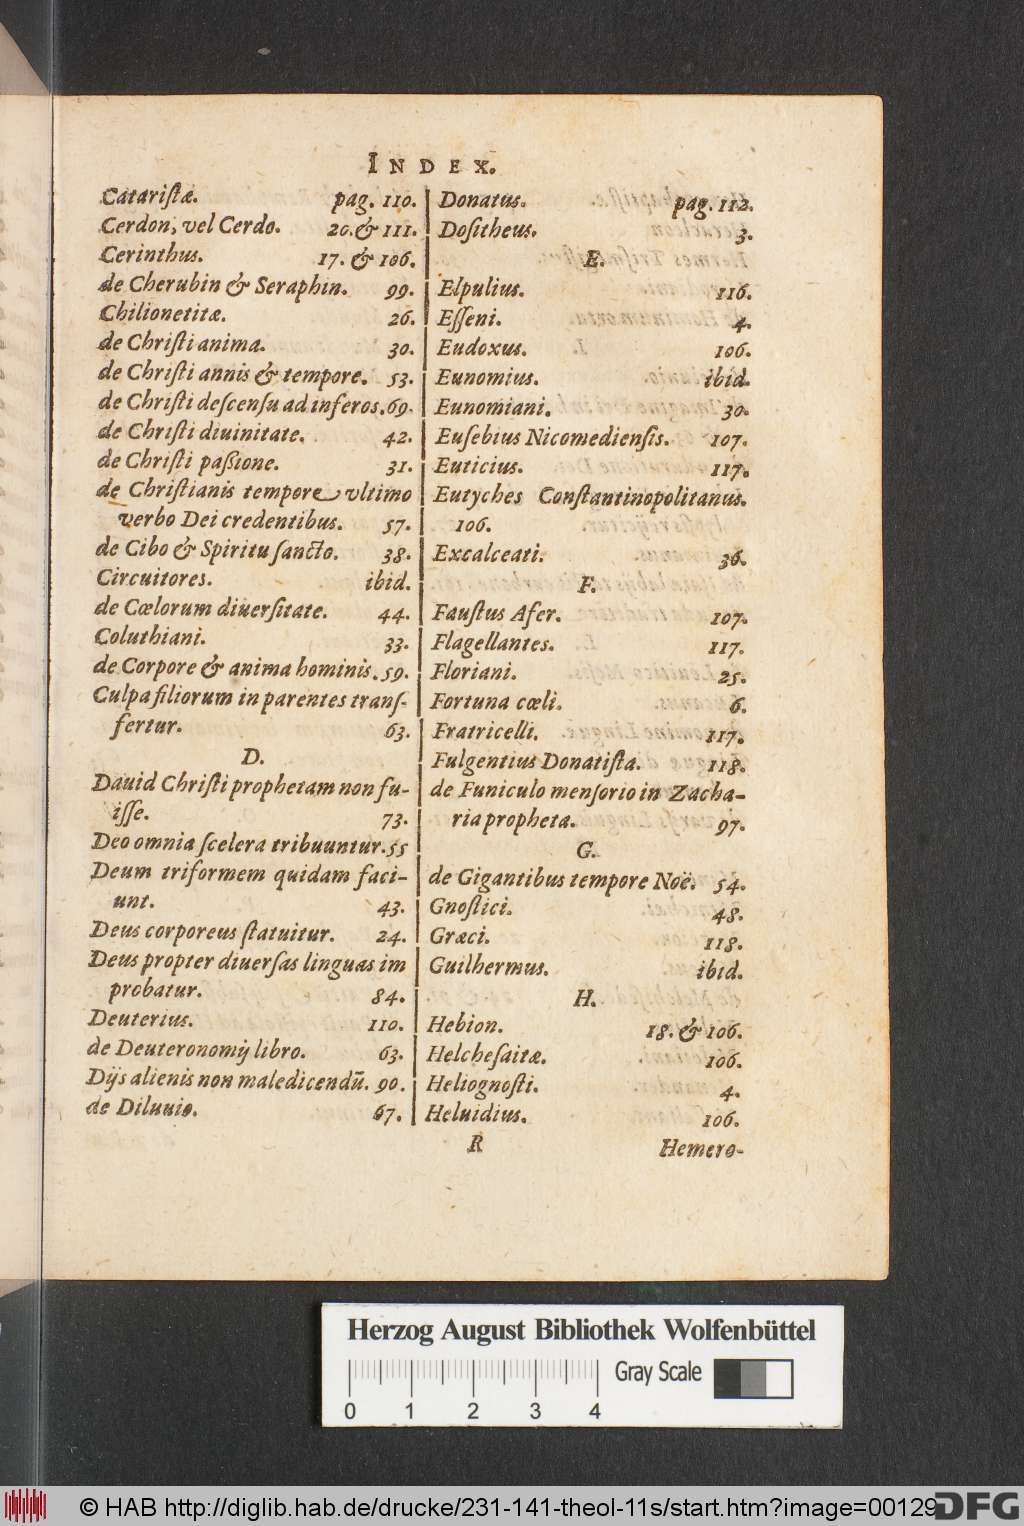 INDEX.
Catariſtæ. pag. 110.
Cerdon, vel Cerdo. 20. & 111.
Cerinthus. 17. & 106.
de Cherubin & Seraphin. 99.
Chilionetitæ. 26.
de Chriſti anima. 30.
de Chriſti annis & tempore. 53.
de Chriſti deſcenſu ad inferos. 69.
de Chriſti diuinitate. 42.
de Chriſti paßione. 31.
de Chriſtianis tempore vltimo
verbo Dei credentibus. 57.
de Cibo & Spiritu ſancto. 38.
Circuitores. ibid.
de Cœlorum diuerſitate. 44.
Coluthiani. 33.
de Corpore & anima hominis. 59.
Culpa filiorum in parentes tranſ-
fertur. 63.
D.
Dauid Chriſti prophetam non fu-
iſſe. 73.
Deo omnia ſcelera tribuuntur. 55
Deum triformem quidam faci-
unt. 43.
Deus corporeus ſtatuitur. 24.
Deus propter diuerſas linguas im
probatur. 84.
Deuterius. 110.
de Deuteronomij libro. 63.
Dijs alienis non maledicendū. 90.
de Diluuio. 67.
Donatus. pag. 112.
Doſitheus. 3.
E.
Elpulius. 116.
Eſſeni. 4.
Eudoxus. 106.
Eunomius. ibid.
Eunomiani. 30.
Euſebius Nicomedienſis. 107.
Euticius. 117.
Eutyches Conſtantinopolitanus.
106.
Excalceati. 36.
F.
Fauſtus Afer. 107.
Flagellantes. 117.
Floriani. 25.
Fortuna cœli. 6.
Fratricelli. 117.
Fulgentius Donatiſta. 118.
de Funiculo menſorio in Zacha-
ria propheta. 97.
G.
de Gigantibus tempore Noë. 54.
Gnoſtici. 48.
Græci. 118.
Guilhermus. ibid.
H.
Hebion. 18. & 106.
Helcheſaitæ. 106.
Heliognoſti. 4.
Heluidius. 106.
R Hemero-
Herzog August Bibliothek Wolfenbüttel
Gray Scale
0 1 2 3 4
© HAB http://diglib.hab.de/drucke/231-141-theol-11s/start.htm?image=00129
DFG